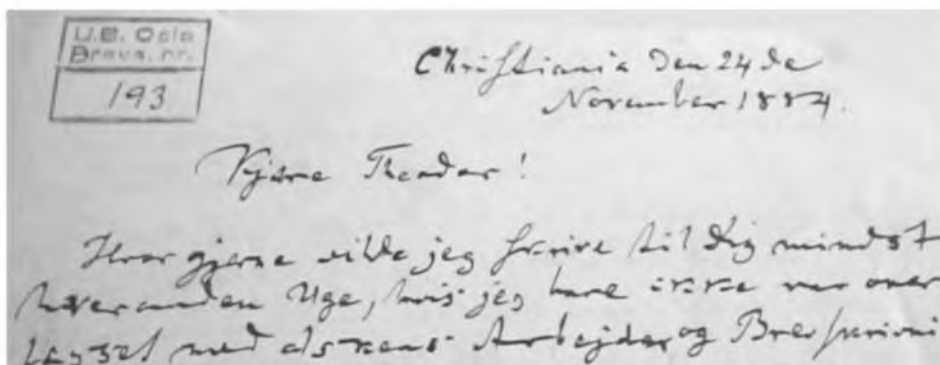 U.B. Oslo
Brevs. nr.
193
Christiania den 24de
November 1884.
Kjære Theodor!
Hvor gjerne vilde jeg skrive til dig mindst
hveranden Uge, hvis jeg bare ikke var over
læsset med alskens Arbejder og Brevskrivni